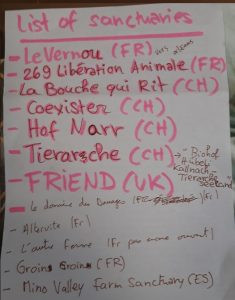 List of sanctuaries
- Le Vernou (FR) vers orleans
- 269 Libération Animale (FR)
- La Bouche qui Rit (CH)
- Coexister (CH)
- Hof Narr (CH)
- Tierarche (CH) → - Biohof
Hubel
Kallnach
- Tierarche
Seeland
- FRIEND (UK)
- Le domaine des Douages (Fr)
- Alteruite (Fr)
- L'autre ferme (Fr pas encore ouvert)
- Groin Groin (FR)
- Mino Valley Farm Sanctuary (ES)